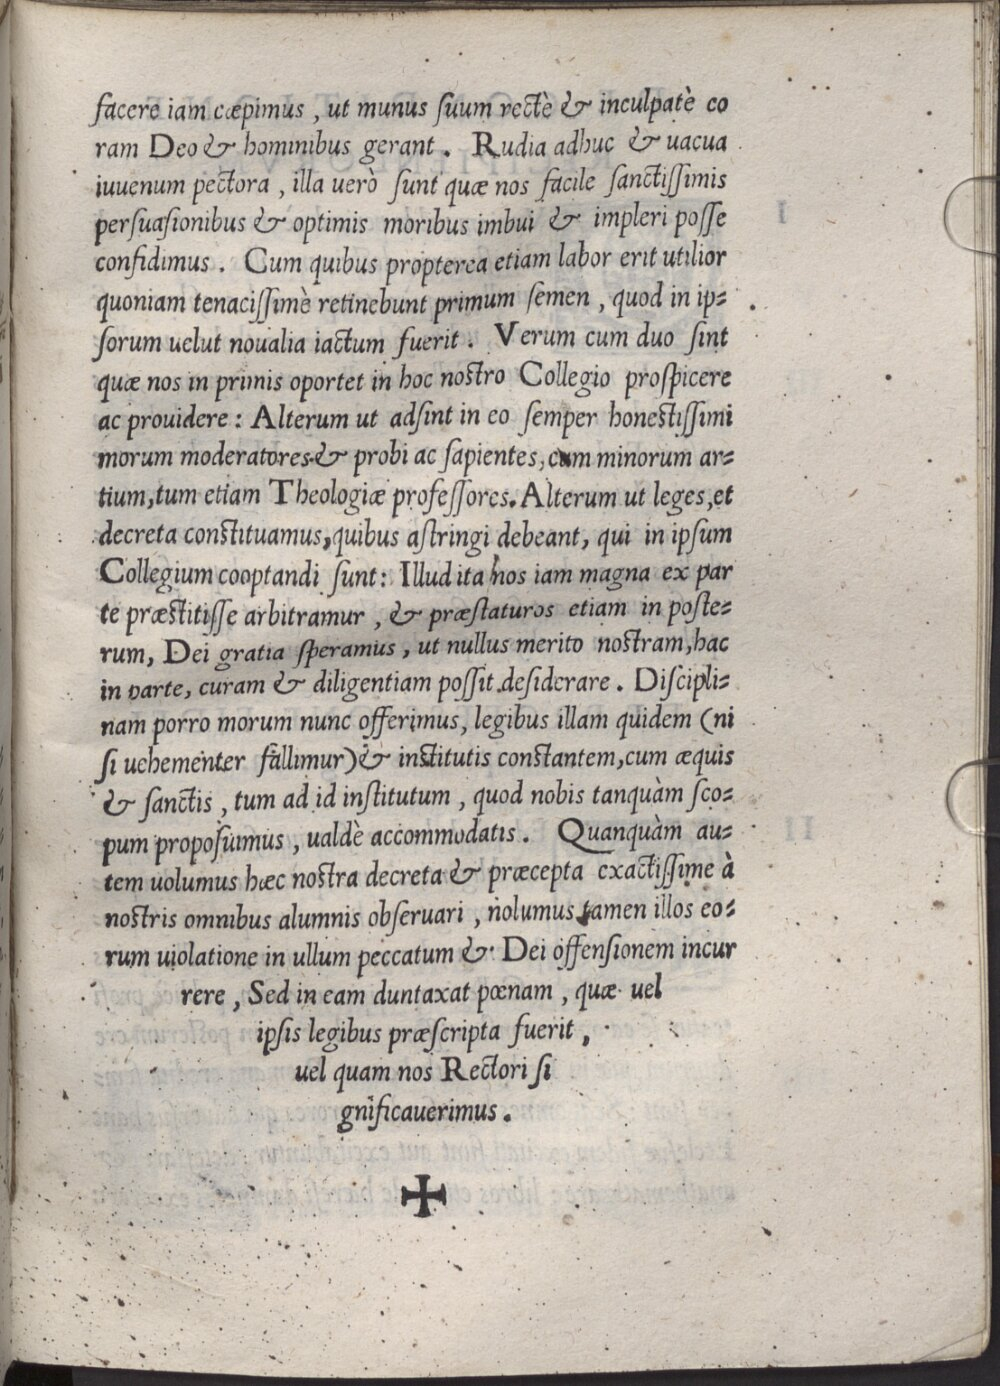 facere iam cæpimus, ut munus suum rectè & inculpatè co
ram Deo & hominibus gerant. Rudia adhuc & uacua
iuuenum pectora, illa uerò sunt quæ nos facile sanctissimis
persuasionibus & optimis moribus imbui & impleri posse
confidimus. Cum quibus propterea etiam labor erit utilior
quoniam tenacissimè retinebunt primum semen, quod in ip=
sorum uelut noualia iactum fuerit. Verum cum duo sint
quæ nos in primis oportet in hoc nostro Collegio prospicere
ac prouidere: Alterum ut adsint in eo semper honestissimi
morum moderatores & probi ac sapientes, cum minorum ar=
tium, tum etiam Theologiæ professores. Alterum ut leges, et
decreta constituamus, quibus astringi debeant, qui in ipsum
Collegium cooptandi sunt: Illud ita nos iam magna ex par
te præstitisse arbitramur, & præstaturos etiam in poste=
rum, Dei gratia speramus, ut nullus merito nostram, hac
in parte, curam & diligentiam possit desiderare. Discipli=
nam porro morum nunc offerimus, legibus illam quidem (ni
si uehementer fallimur) & institutis constantem, cum æquis
& sanctis, tum ad id institutum, quod nobis tanquàm sco=
pum proposuimus, ualdè accommodatis. Quanquàm au=
tem uolumus hæc nostra decreta & præcepta exactissime à
nostris omnibus alumnis obseruari, nolumus tamen illos eo=
rum uiolatione in ullum peccatum & Dei offensionem incur
rere, Sed in eam duntaxat pœnam, quæ uel
ipsis legibus præscripta fuerit,
uel quam nos Rectori si
gnificauerimus.